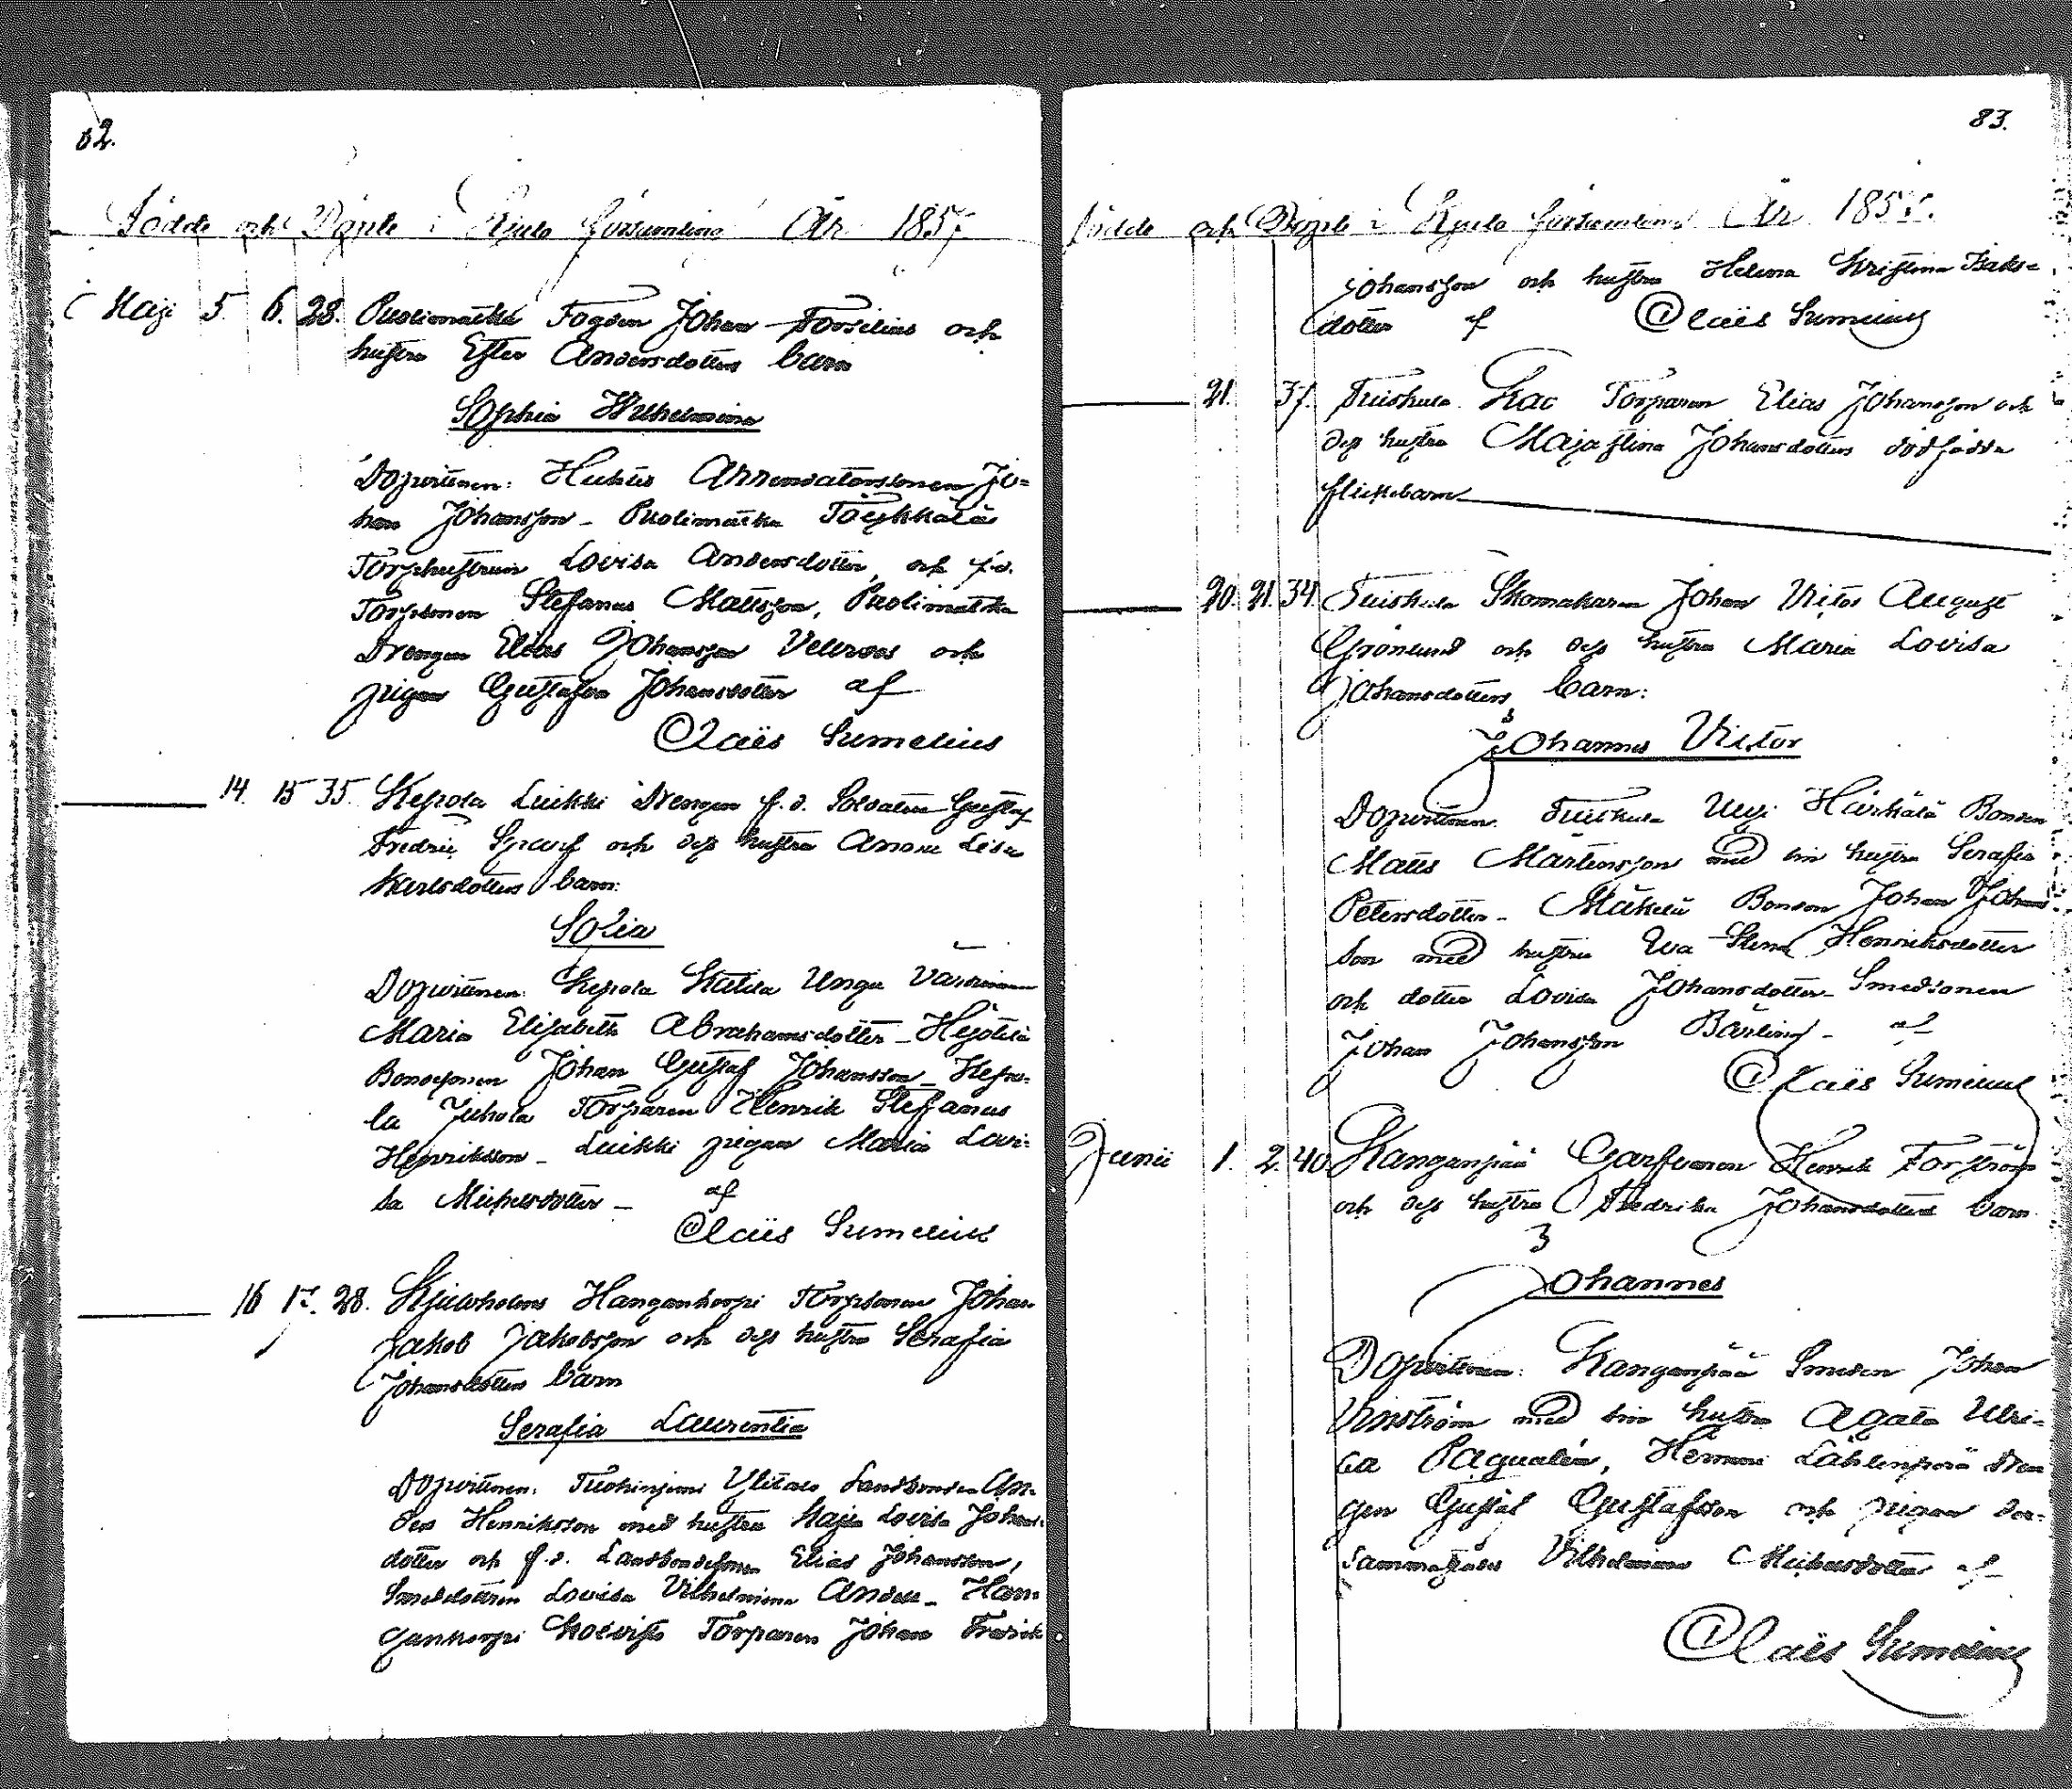 82.
Födde och Döpte i Kjulo församling År 1857
Maji 5 6. 28. Puolimatka Fogden Johan Forselius och
hustru Ester Andersdotters barn
Sophia Wilhelmina
Dopvittnen: Arrendatorssonen Jo=
han Johansson - Puolimatka
Torphustrun Lovisa Andersdotter, och f.d.
Torpsonen Stefanus Mattsson, Puolimatka
Drengen Elias Johansson och
pigan Gustafva Johansdotter af
Claës Sumelius
14. 15 35. Kepola Luikki Drengen f.d. Soldaten Gustaf
Fredric Sparf och dess hustru Anna Lisa
Karlsdotters barn:
Sofia
Dopvittnen: Kepola Unga
Maria Elisabeth Abrahamsdotter - Hejötilä
Bondesonen Johan Gustaf Johansson - Kepo-
la Juhola Torparen Henrik Stefanus
Henriksson - Luikki pigan Maria Lovi-
sa Michelsdotter - af
Claës Sumelius
16 17. 28. Kjuloholms Hangankorpi Torpsonen Johan
Jakob Jakobsson och dess hustru Serafia
Johansdotters barn
Serafia Laurentia
Dopvittnen: Ylitalo Landbonden An-
ders Henriksson med hustru Maja Lovisa Johans-
dotter och f.d. Landbondesonen Elias Johansson,
Lovisa Vilhelmina Han-
gankorpi Torparen Johan Fredrik
83.
Födde och Döpte i Kjulo församling År 1857.
Johansson och hustru Helena Kristina Isaks=
dotter af Claës Sumelius
21. 37. Tuiskula Torparen Elias Johansson och
dess hustru Maja Stina Johansdotters dödfödda
flickebarn
20. 21. 34. Tuiskula Skomakaren Johan Victor August
Grönlund och dess hustru Maria Lovisa
Johansdotters barn:
Johannes Victor
Dopvittnen: Tuiskula Uusi Härkälä Bonden
Matts Mårtensson med sin hustru Serafia
Petersdotter - Mäkelä Bonden Johan Johans-
son med hustru Eva Stina Henriksdotter
och dotter Lovisa Johansdotter - Smedsonen
Johan Johansson Bärling - af
Claës Sumelius
Junii 1. 2. 40 Kanganpää Garfvaren Henrik Forström
och dess hustru Fredrika Johansdotters barn
3
Johannes
Dopvittnen: Kanganpää Smeden Johan
med sin hustru Agata Ulri-
ca Lähteenperä Dren
gen Gustaf Gustafsson och pigan der-
sammastädes Vilhelmina Michelsdotter af
Claës Sumelius